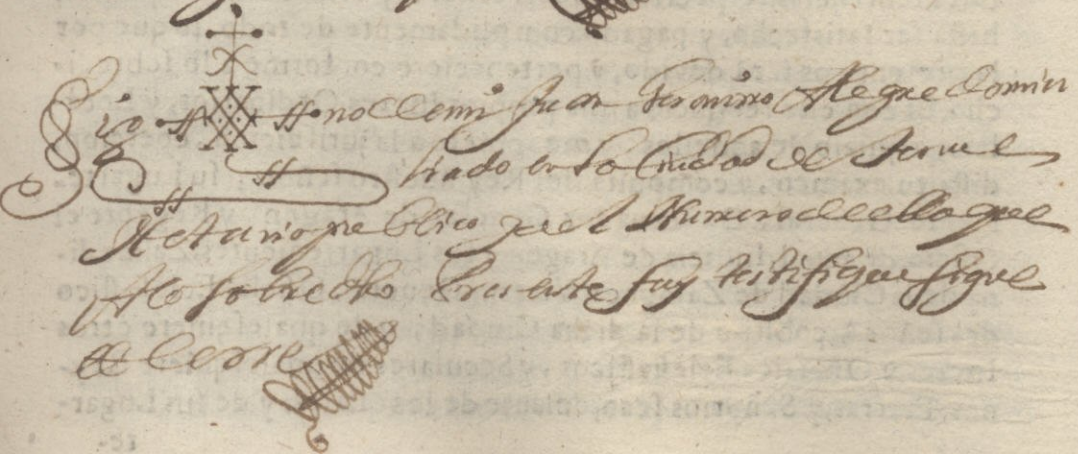 Sig no de mi Juan Geronimo Alegre domici
liado en la Ciudad de Teruel
Notario publico y del Numero de ella que
A lo sobre dho Presente fuy testifique signe
et Cerre